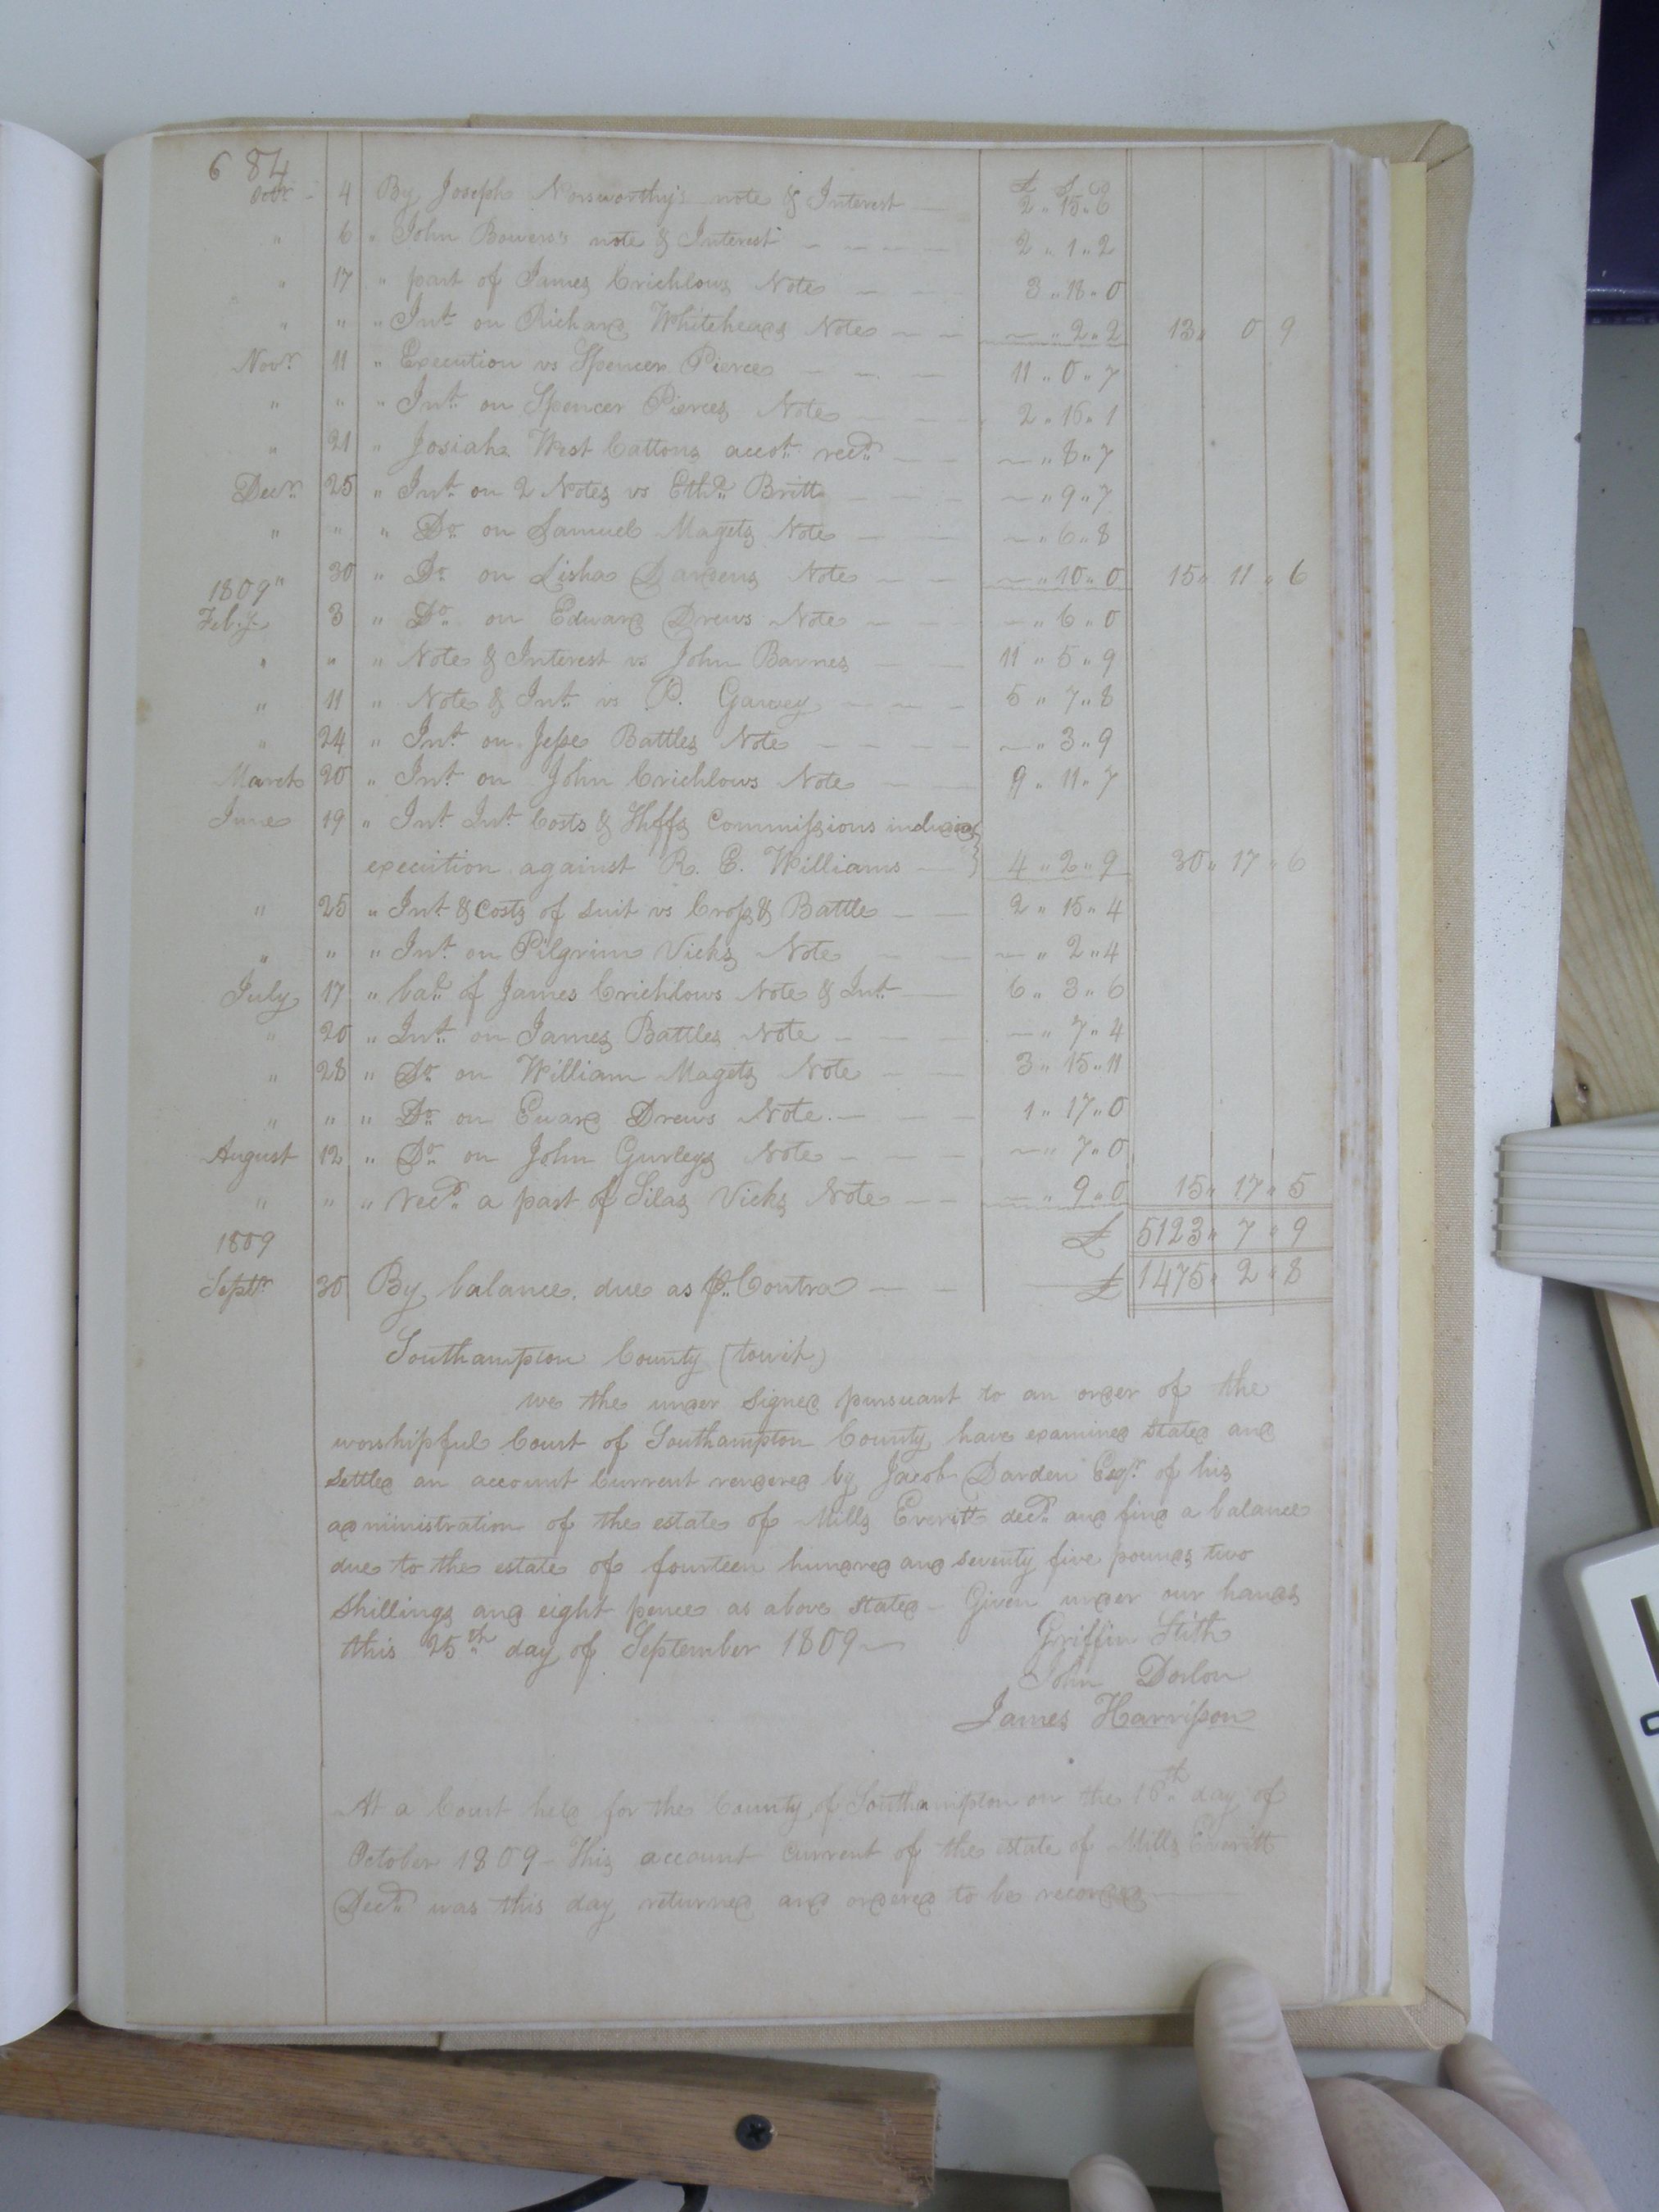 684
£ S D
Octr 4 By Joseph Norsworthy's note & Interest 2 " 15 " 6
" 6 " John Bowers's note & Interest 2 " 1 " 2
" 17 " part of James Crichlows Note 3 " 18 " 0
" " " Int. on Richard Whiteheads Note — " 2 " 2 13 " 0 9
Novr. 11 " Execution vs Spencer Pierce 11 " 0 " 7
" " " Int. on Spencer Pierces Note 2 " 15 " 1
" 21 " Josiah West Cattons accot. recd. — " 8 " 7
Decr. 25 " Int. on 2 Notes vs Ethd. Britt — " 9 " 7
" " " Do. on Samuel Magets Note — " 6 " 8
" 30 " Do. on Lisha Dardens Note — " 10 " 0 15 " 11 " 6
1809
Feby. 3 " Do. on Edward Drews Note — " 6 " 0
" " " Note & Interest vs John Barnes 11 " 5 " 9
" 11 " Note & Int. vs P. Garvey 5 " 7 " 8
" 24 " Int. on Jesse Battles Note — " 3 " 9
March 20 " Int. on John Crichlows Note 9 " 11 " 7
June 19 " Int. Int. Costs & Shffs Commissions
execution against R. E. Williams 4 " 2 " 9 30 " 17 " 6
" 25 " Int & Costs of suit vs Cross & Battle 2 " 15 " 4
" " " Int. on Pilgrim Vicks Note — " 2 " 4
July 17 " bal. of James Crichlows Note & Int. 6 " 3 " 6
" 20 " Int. on James Battles Note — " 7 " 4
" 28 " Do. on William Magets Note 3 " 15 " 11
" " " Do. on Eward Drews Note. 1 " 17 " 0
August 12 " Do. on John Gurleys Note — " 7 " 0
" " " Recd. a part of Silas Vicks Note — " 9 " 0 15 " 17 " 5
1809 £ 5123 " 7 " 9
Septr. 30 By balance due as pr. Contra £ 1475 " 2 " 8
Southampton County (towit)
we the under signed pursuant to an order of the
worshipful Court of Southampton County have examined stated and
settled an account Current rendered by Jacob Darden Esqr. of his
administration of the estate of Mills Everitt decd. and find a balance
due to the estate of fourteen hundred and seventy five pounds two
shillings and eight pence as above stated – Given under our hands
this 25th day of September 1809 —
Griffin Stith
John Dorlon
James Harrisson
At a Court held for the County of Southampton on the 16th day of
October 1809 – This account current of the estate of Mills Everitt
Decd. was this day returned and ordered to be recorded